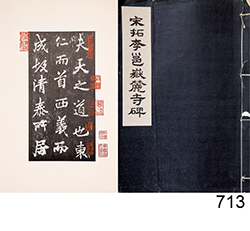 夫天之道也東
仁而首西義而
成故清泰所居
宋拓李邕嶽麓寺碑
713